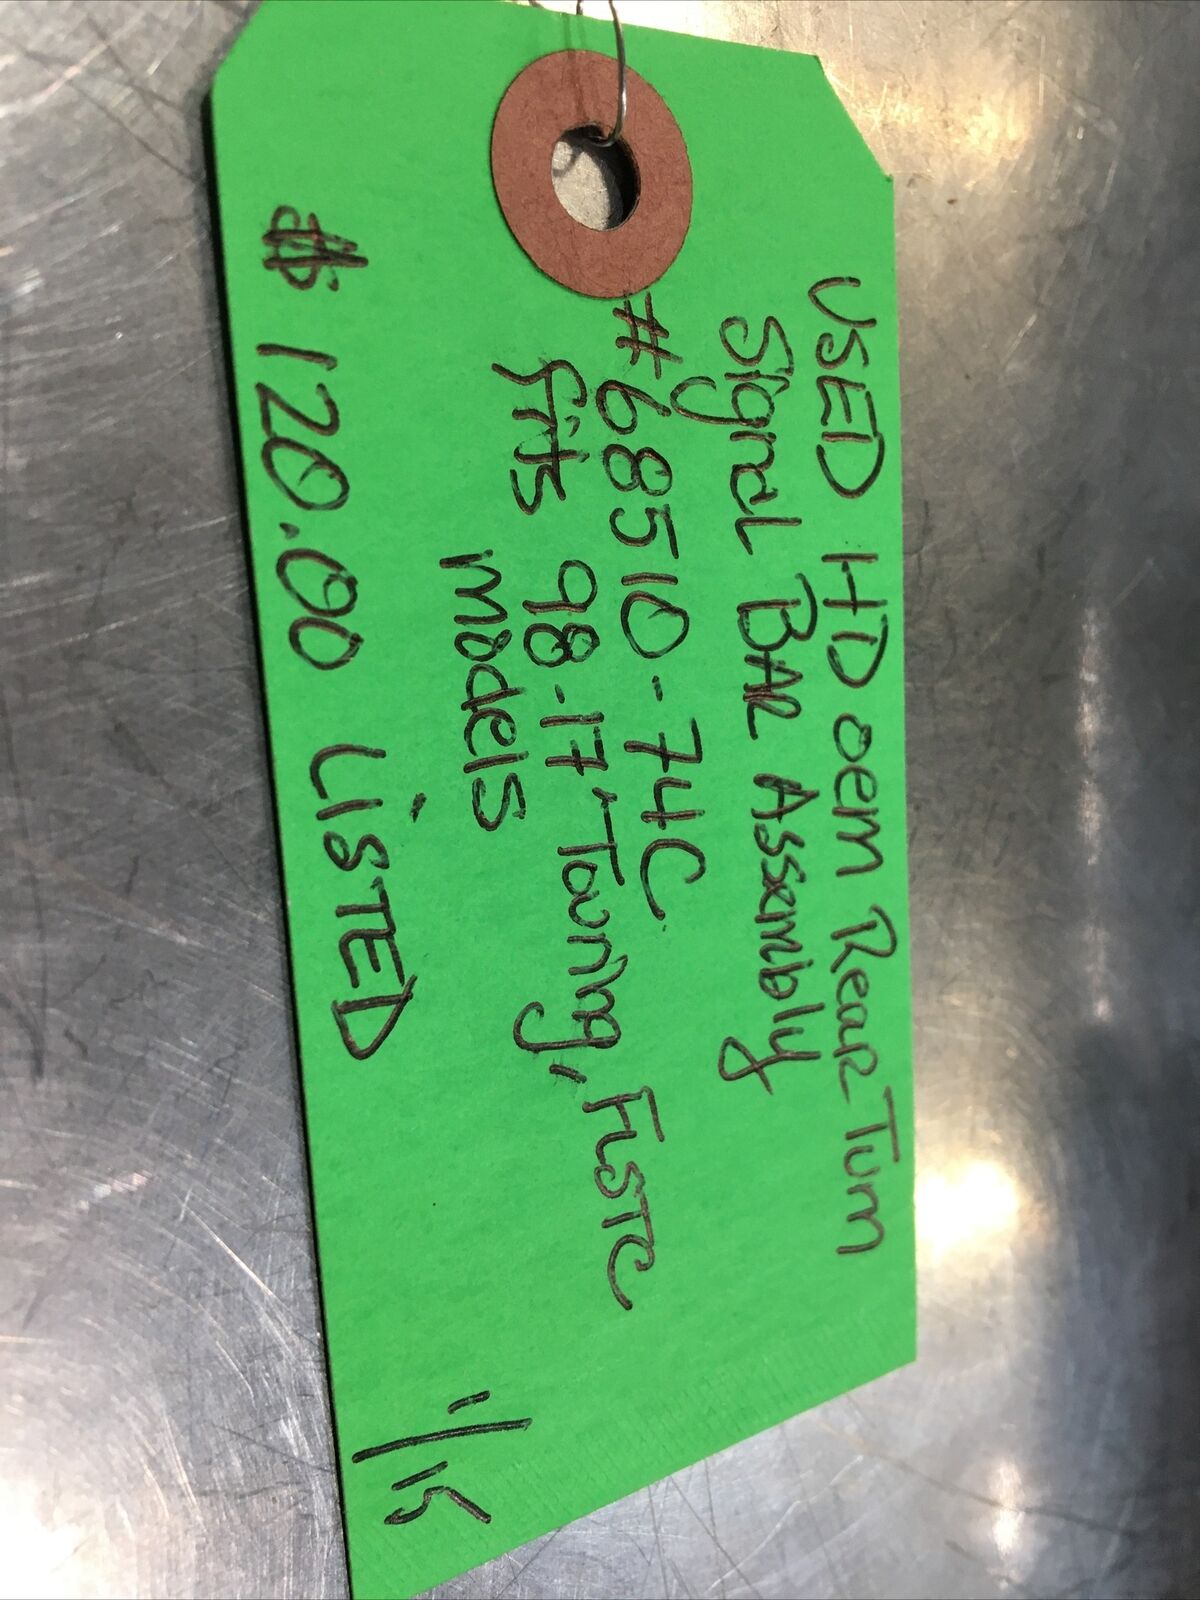 USED HD oem Rear Turn
Signal Bar Assembly
#68510-74C
fits 98-17 Touring, FLSTC
models
$120.00 LISTED
1/15